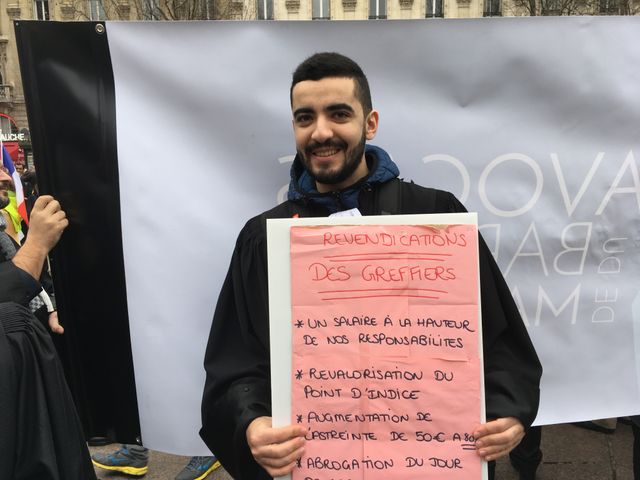 AUCHE
AVOC
BA
DE DU
MA
REVENDICATIONS
DES GREFFIERS
* UN SALAIRE À LA HAUTEUR
DE NOS RESPONSABILITES
* REVALORISATION DU
POINT D'INDICE
* AUGMENTATION DE
L'ASTREINTE DE 50€ A 80
* ABROGATION DU JOUR